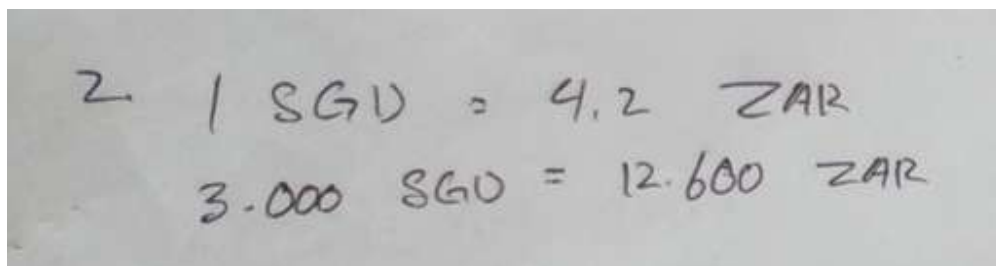 2. 1 SGD = 4.2 ZAR
3.000 SGD = 12.600 ZAR